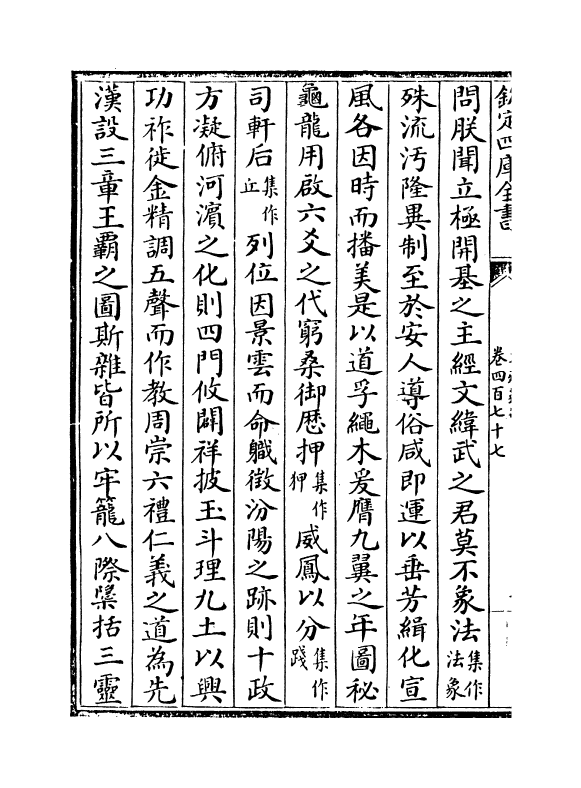 欽定四庫全書
卷四百七十七
問朕聞立極開基之主經文緯武之君莫不象法集作法象
殊流汚隆異制至於安人導俗咸即運以垂芳緝化宣
風各因時而播美是以道孚繩木爰膺九翼之年圖秘
龜龍用啟六爻之代窮桑御厯押集作狎威鳳以分集作踐
司軒后集作丘列位因景雲而命軄徴汾陽之跡則十政
方凝俯河濵之化則四門攸闢祥披玉斗理九土以興
功祚徙金精調五聲而作教周崇六禮仁義之道為先
漢設三章王霸之圖斯雜皆所以牢籠八際檃括三靈